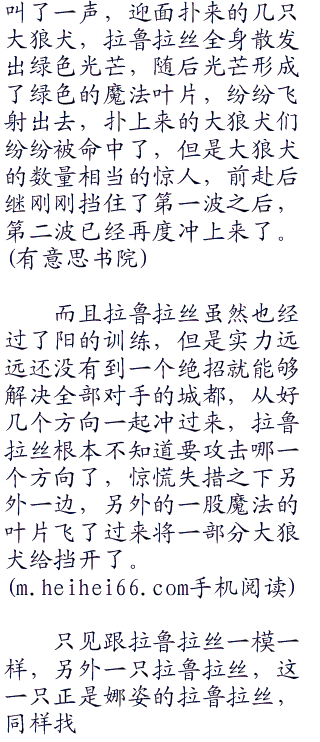 叫了一声，迎面扑来的几只
大狼犬，拉鲁拉丝全身散发
出绿色光芒，随后光芒形成
了绿色的魔法叶片，纷纷飞
射出去，扑上来的大狼犬们
纷纷被命中了，但是大狼犬
的数量相当的惊人，前赴后
继刚刚挡住了第一波之后，
第二波已经再度冲上来了。
(有意思书院)
而且拉鲁拉丝虽然也经
过了阳的训练，但是实力远
远还没有到一个绝招就能够
解决全部对手的城都，从好
几个方向一起冲过来，拉鲁
拉丝根本不知道要攻击哪一
个方向了，惊慌失措之下另
外一边，另外的一股魔法的
叶片飞了过来将一部分大狼
犬给挡开了。
(m.heihei66.com手机阅读)
只见跟拉鲁拉丝一模一
样，另外一只拉鲁拉丝，这
一只正是娜姿的拉鲁拉丝，
同样找